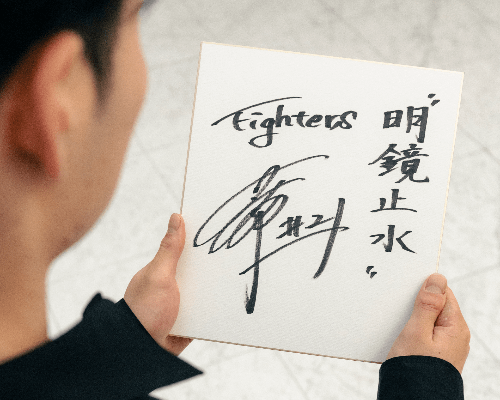 "明鏡止水"
Fighters
#21